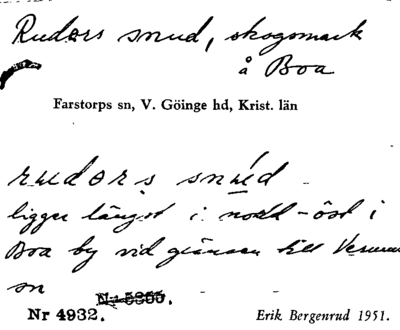 Ruders snud, skogsmark
å Boa
Farstorps sn, V. Göinge hd, Krist. län
ruders snud
ligger längst i nordd-öst i
Boa by vid gränsen till Verum
sn
Nr 5355.
Nr 4932. Erik Bergenrud 1951.